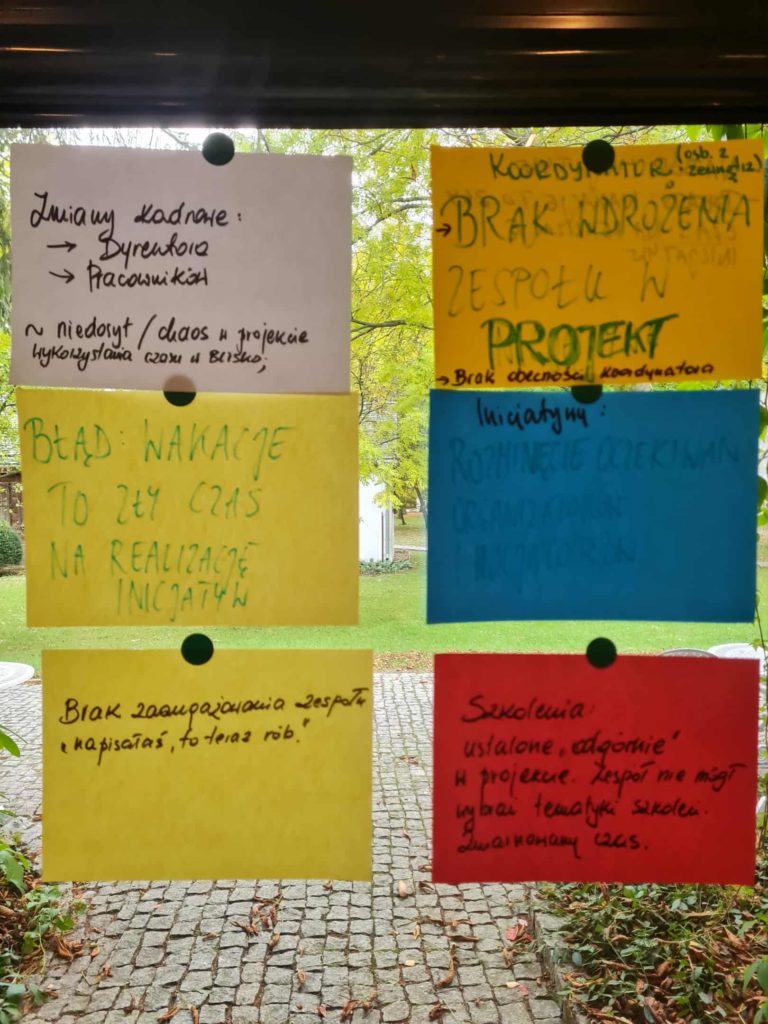 Zmiany kadrowe:
→ Dyrektora
→ Pracowników
~ niedosyt / chaos w projekcie
wykorzystania czasu w
KOORDYNATOR (osb. z zewnątrz)
→ BRAK WDROŻENIA
ZESPOŁU W
PROJEKT
→ Brak obecności koordynatora
BŁĄD: WAKACJE
TO ZŁY CZAS
NA REALIZACJĘ
INICJATYW
Inicjatywy:
ROZMINIĘCIE OCZEKIWAŃ
ORGANIZATORÓW
I INICJATORÓW
Brak zaangażowania zespołu
"napisałaś, to teraz rób."
Szkolenia:
ustalone "odgórnie"
w projekcie. Zespół nie mógł
wybrać tematyki szkoleń.
Zmarnowany czas.